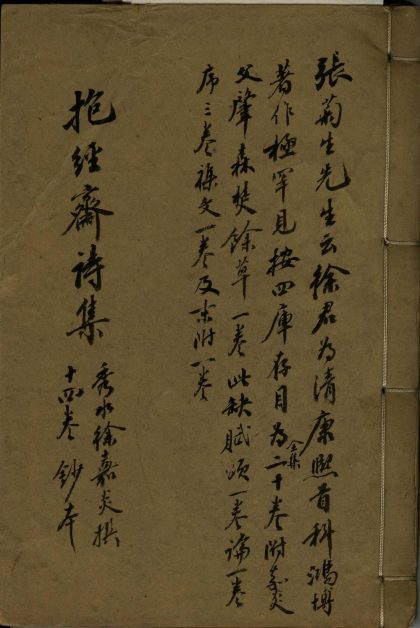 張菊生先生云徐君為清康熙首科鴻博
著作極罕見按四庫存目為全集二十卷附嘉炎
父肇森焚餘草一卷此缺賦頌一卷論一卷
序三卷襍文一卷及末附一卷
抱經齋詩集
秀水徐嘉炎撰
十四卷 鈔本